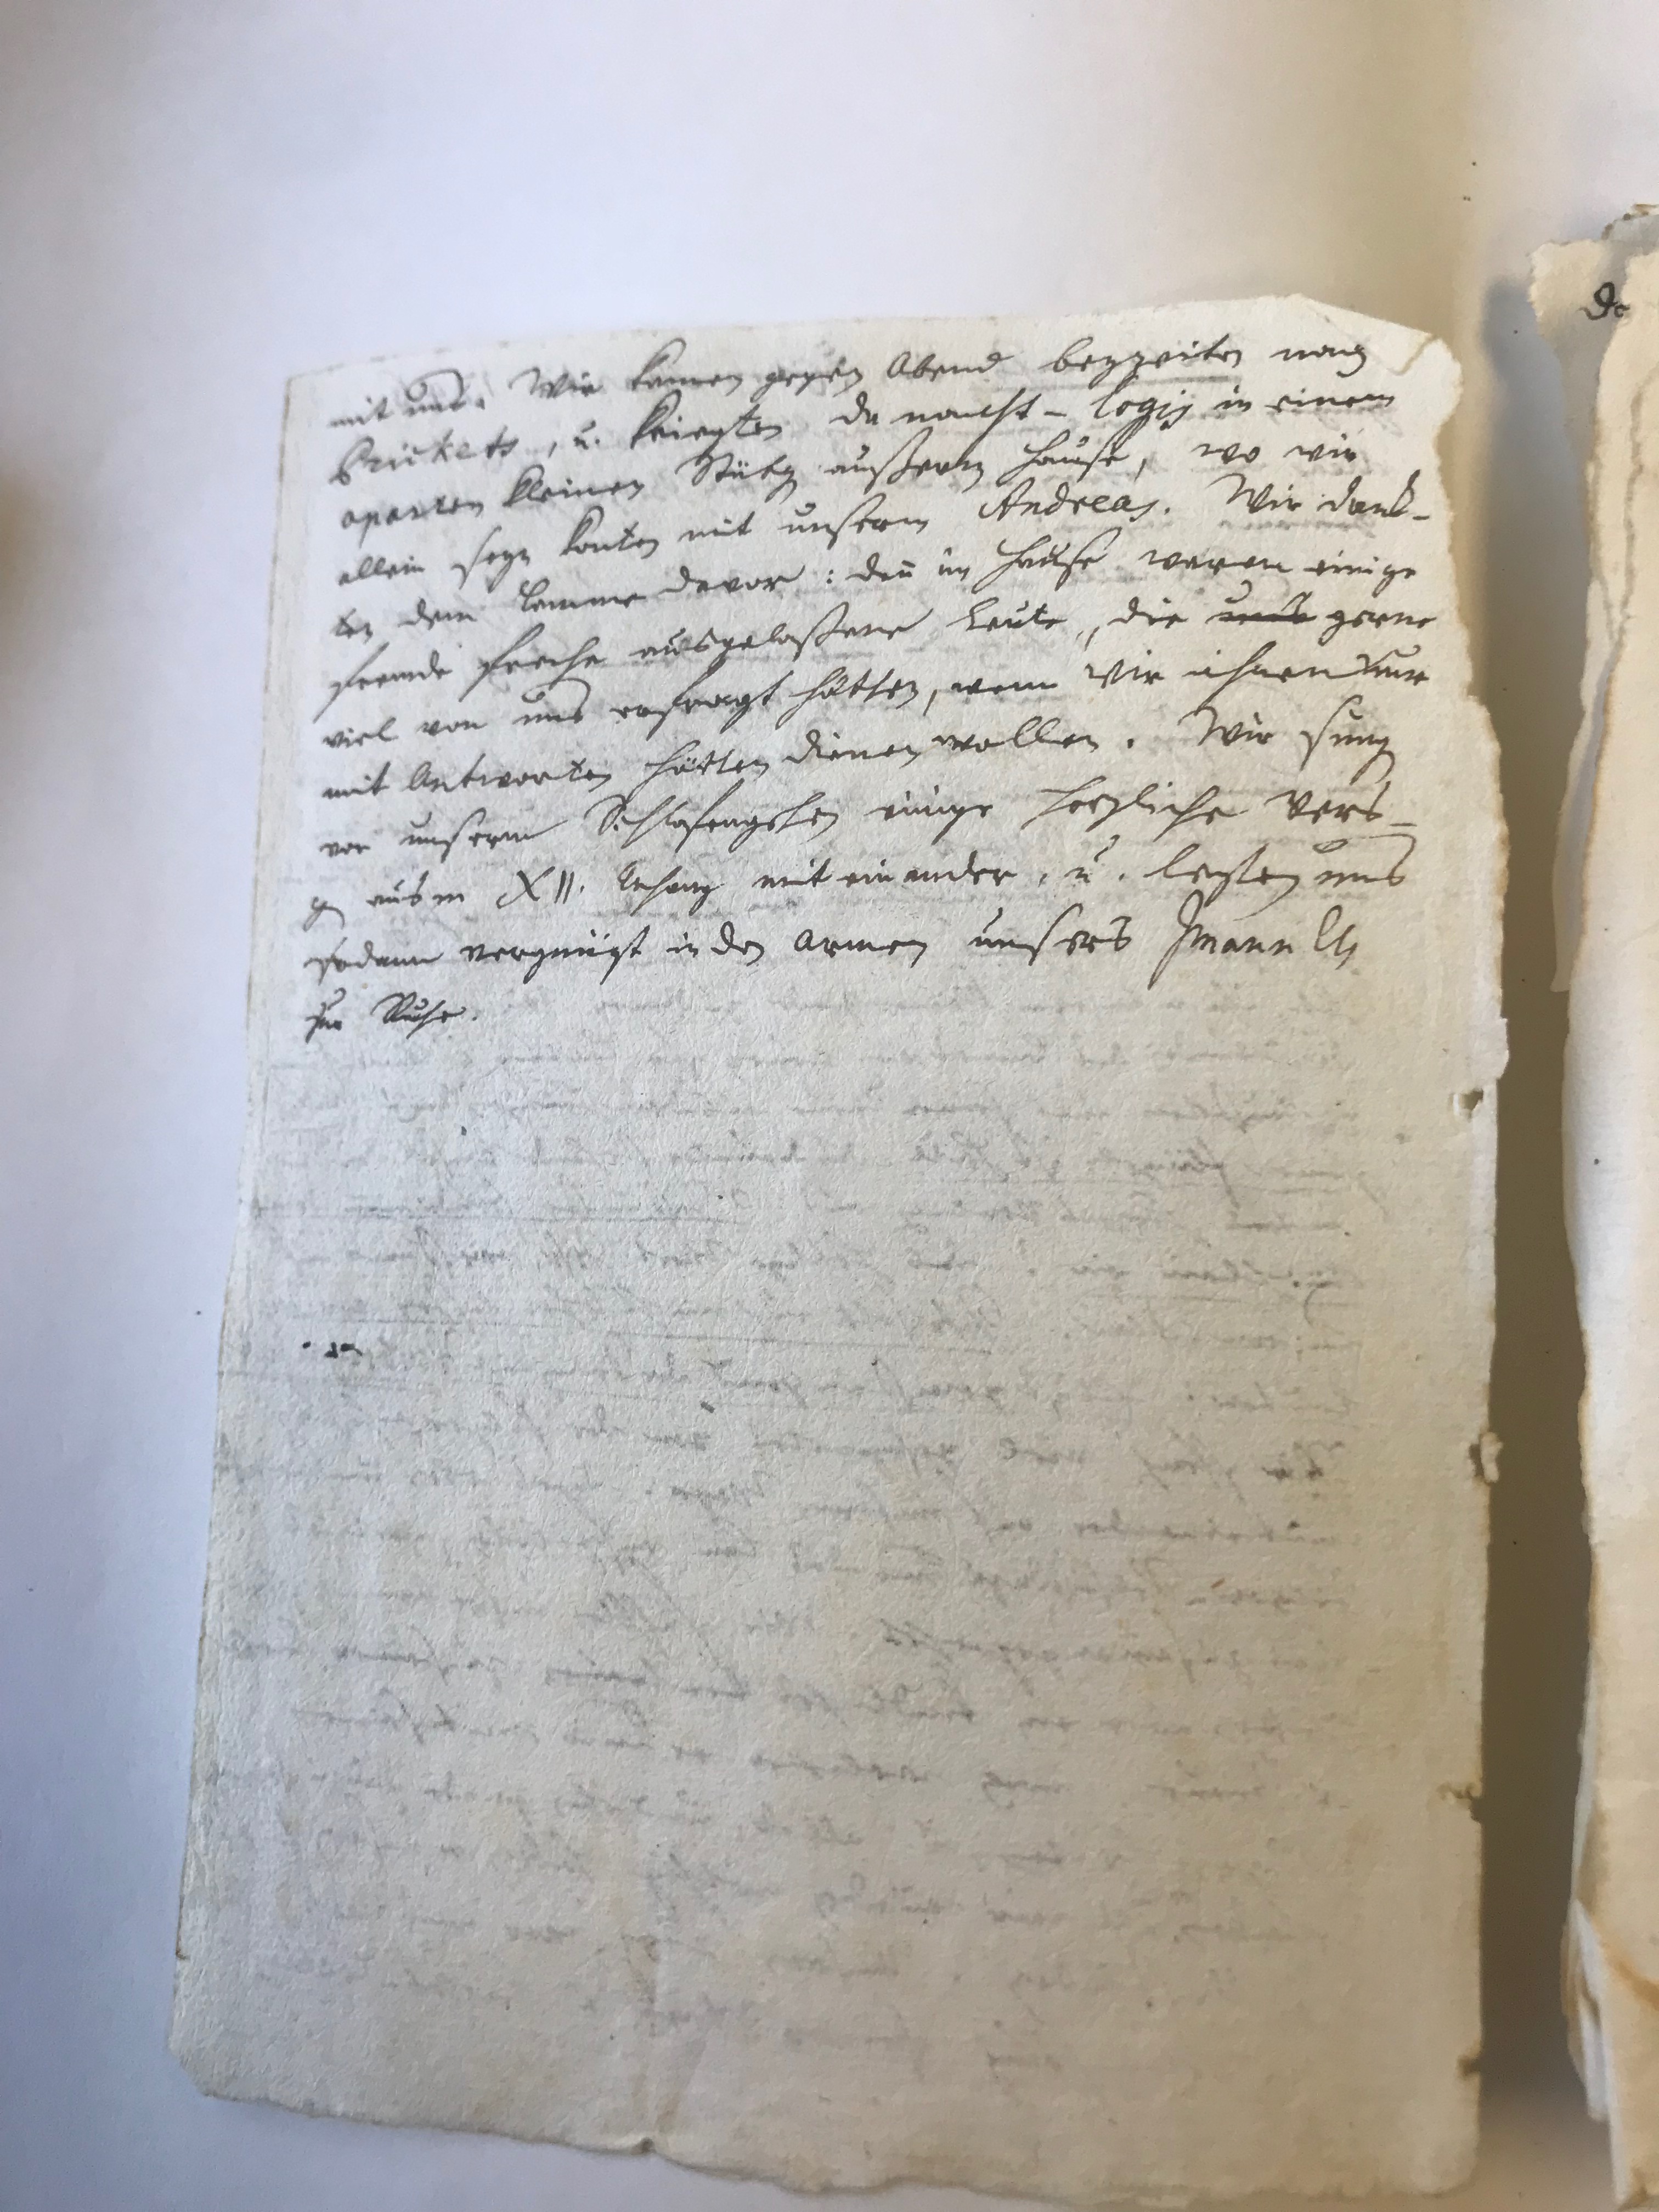 mit uns. Wir kamen gegen Abend beyzeiten nach
Brickets, u. kriegten da nacht-logis in einem
aparten kleinen Stübgen außerm Hause, wo wir
allein seyn konten mit unserm Andreas. Wir dank-
ten dem Lamme davor: den̄ im Hause waren einige
fremde freche ausgelaßene Leute, die uns gerne
viel von uns erfragt hätten, wenn wir ihnen nur
mit Antworten hätten dienen wollen. Wir sungen
vor unserm Schlafengehen einige herzliche Vers-
gen ausm XII. Anhang mit einander, u. legten uns
sodann vergnügt in den Armen unsers Imanuels
zur Ruhe.
De